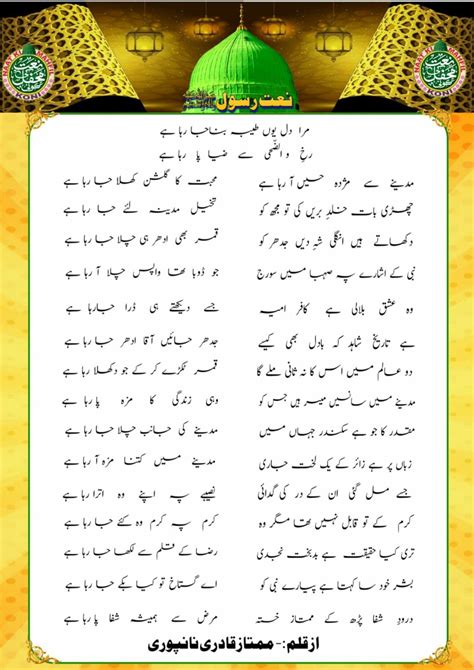 نعت رسول ﷺ
مرا دل یوں طیبہ بنا جا رہا ہے
رخِ والضحیٰ سے ضیا پا رہا ہے
مدینے سے مژدہ حسیں آ رہا ہے محبت کا گلشن کھلا جا رہا ہے
چھڑی بات خلدِ بریں کی تو مجھ کو تخیل مدینہ لئے جا رہا ہے
دکھاتے ہیں انگلی شہِ دیں جدھر کو قمر بھی ادھر ہی چلا جا رہا ہے
نبی کے اشارے پہ صہبا میں سورج جو ڈوبا تھا واپس چلا آ رہا ہے
وہ عشق بلالی ہے کافر امیہ جسے دیکھتے ہی ڈرا جا رہا ہے
ہے تاریخ شاہد کہ بادل بھی کیسے جدھر جائیں آقا ادھر جا رہا ہے
دو عالم میں اس کا نہ ثانی ملے گا قمر ٹکڑے کر کے جو دکھلا رہا ہے
مدینے میں سانسیں میسر ہیں جس کو وہی زندگی کا مزہ پا رہا ہے
مقدر کا جو ہے سکندر جہاں میں مدینے کی جانب چلا جا رہا ہے
زباں پر ہے زائر کے یک لخت جاری مدینے میں کتنا مزہ آ رہا ہے
جسے مل گئی ان کے در کی گدائی نصیبے پہ اپنے وہ اترا رہا ہے
کرم کے تو قابل نہیں تھا مگر وہ کرم پہ کرم وہ کئے جا رہا ہے
تری کیا حقیقت ہے بدبخت نجدی رضا کے قلم سے لکھا جا رہا ہے
بشر خود سا کہتا ہے پیارے نبی کو اے گستاخ تو کیا بکے جا رہا ہے
درودِ شفا پڑھ کے ممتاز خستہ مرض سے ہمیشہ شفا پا رہا ہے
از قلم:- ممتاز قادری نانپوری